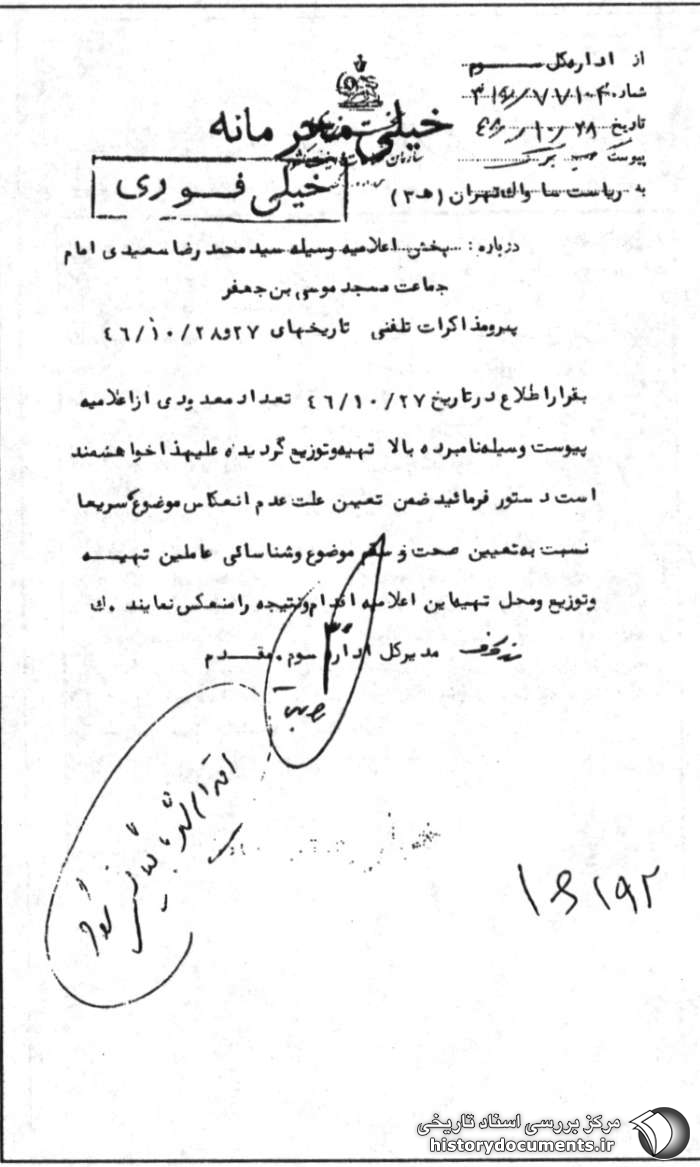 از اداره‌کل سوم
شماره ۳۱۶/۷۷۱۰۴
تاریخ ۴۶/۱۰/۲۸
پیوست برگ
به ریاست ساواک تهران (ه‍ ۳)
خیلی محرمانه
خیلی فوری
درباره: پخش اعلامیه وسیله سید محمد رضا سعیدی امام
جماعت مسجد موسی بن جعفر
پیرو مذاکرات تلفنی تاریخهای ۲۷ و ۴۶/۱۰/۲۸
بقرار اطلاع در تاریخ ۴۶/۱۰/۲۷ تعداد معدودی از اعلامیه
پیوست وسیله نامبرده بالا تهیه و توزیع گردیده علیهذا خواهشمند
است دستور فرمائید ضمن تعیین علت عدم انعکاس موضوع سریعا
نسبت به تعیین صحت و سقم موضوع و شناسائی عاملین تهیــه
و توزیع و محل تهیه این اعلامیه اقدام و نتیجه را منعکس نمایند . ک
مدیرکل اداره سوم . مقدم
اقدام
شود
مرکز بررسی اسناد تاریخی
historydocuments.ir